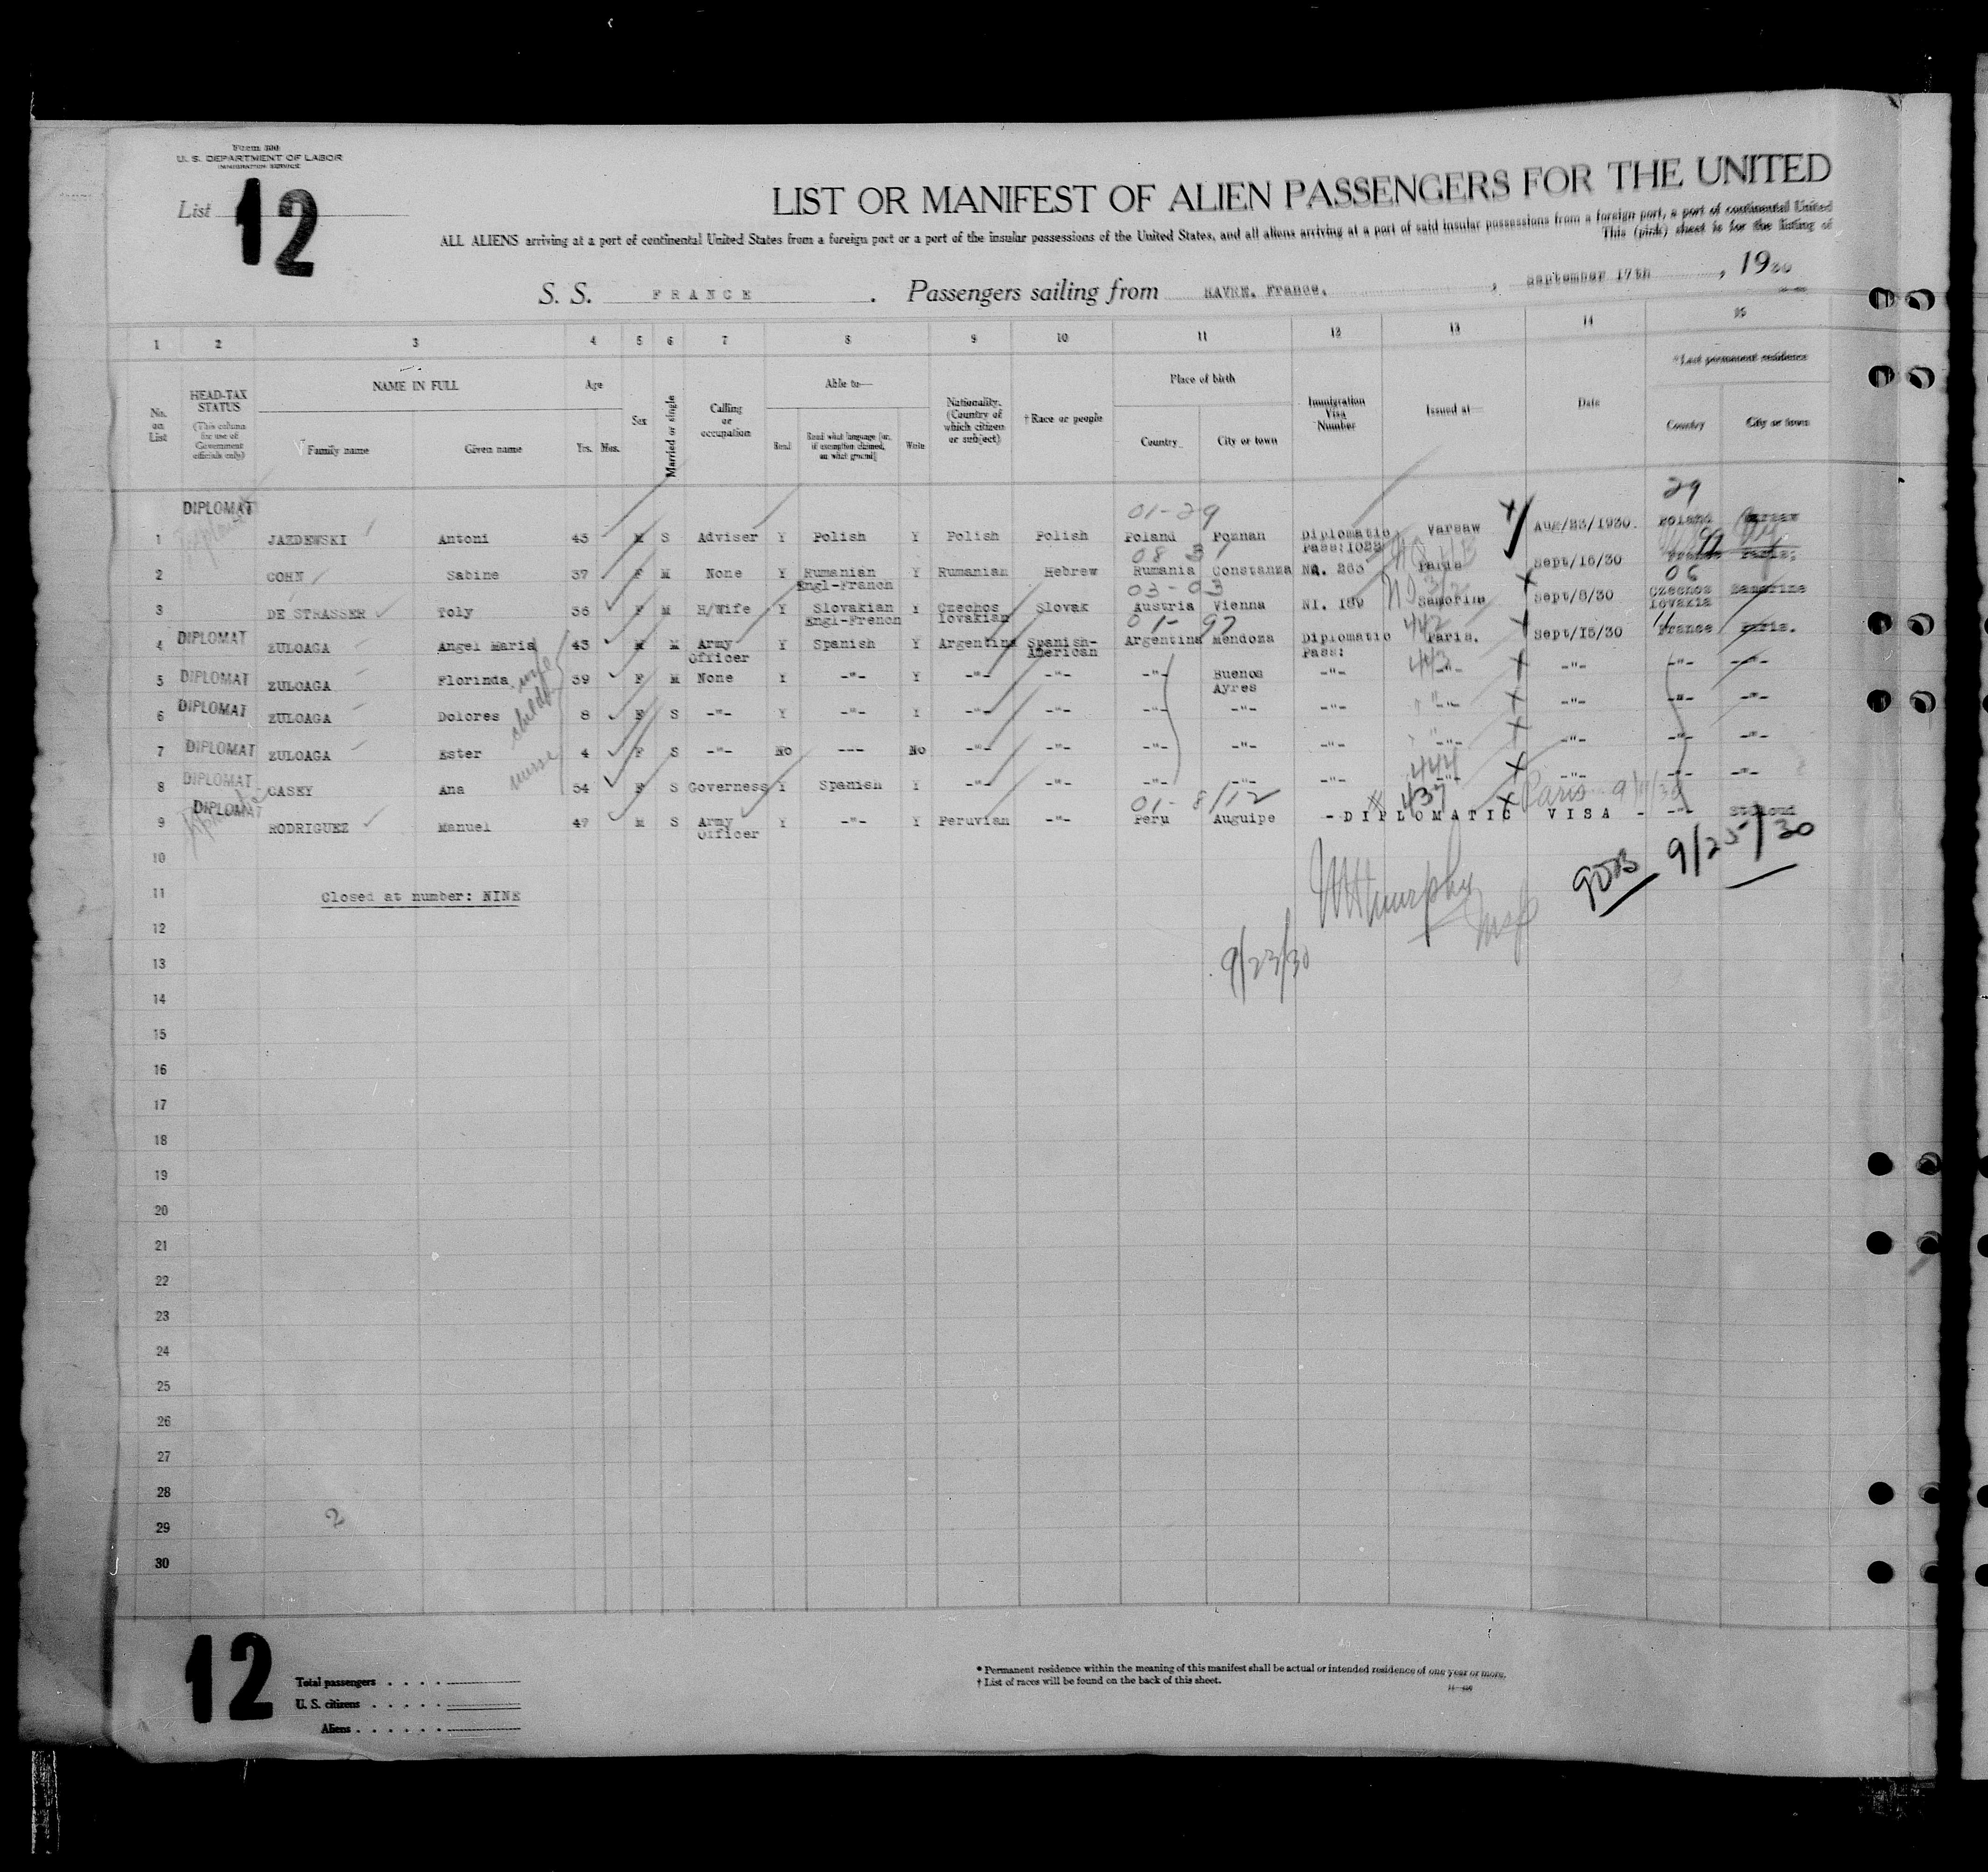 Form 500
U. S. DEPARTMENT OF LABOR
IMMIGRATION SERVICE
List 12
LIST OR MANIFEST OF ALIEN PASSENGERS FOR THE UNITED
ALL ALIENS arriving at a port of continental United States from a foreign port or a port of the insular possessions of the United States, and all aliens arriving at a port of said insular possessions from a foreign port, a port of continental United
This (pink) sheet is for the listing of
S. S. FRANCE . Passengers sailing from HAVRE. France. , September 17th , 1930
1 2 3 4 5 6 7 8 9 10 11 12 13 14 15
No. on List
HEAD-TAX STATUS (This column for use of Government officials only)
NAME IN FULL
Family name Given name
Age
Yrs. Mos.
Sex
Married or single
Calling or occupation
Able to—
Read Read what language [or, if exemption claimed, on what ground] Write
Nationality. (Country of which citizen or subject)
†Race or people
Place of birth
Country City or town
Immigration Visa Number
Issued at—
Date
*Last permanent residence
Country City or town
29
DIPLOMAT
01-29
1 JAZDEWSKI Antoni 45 M S Adviser Y Polish Y Polish Polish Poland Poznan Diplomatic Pass:1022 Varsaw Aug/23/1930. Poland Warsaw
08 3
2 COHN Sabine 37 F M None Y Rumanian Engl-French Y Rumanian Hebrew Rumania Constanza NQ. 263 Paris Sept/16/30 France Paris;
03-03 06
3 DE STRASSER Toly 36 F M H/Wife Y Slovakian Engl-French Y Czechos lovakian Slovak Austria Vienna NI. 189 Samorine Sept/8/30 Czechos lovakia Samorine
01-97 442 11
4 DIPLOMAT ZULOAGA Angel Maria 43 M M Army Officer Y Spanish Y Argentina Spanish-American Argentina Mendoza Diplomatic Pass: Paris. Sept/15/30 France Paris.
443
5 DIPLOMAT ZULOAGA Florinda wife 39 F M None Y -"- Y -"- -"- -"- Buenos Ayres -"- -"- -"- -"- -"-
6 DIPLOMAT ZULOAGA Dolores child 8 F S -"- Y -"- Y -"- -"- -"- -"- -"- -"- -"- -"- -"-
7 DIPLOMAT ZULOAGA Ester 4 F S -"- No --- No -"- -"- -"- -"- -"- -"- -"- -"- -"-
444
8 DIPLOMAT CASEY Ana nurse 54 F S Governess Y Spanish Y -"- -"- -"- -"- -"- -"- -"- -"- -"-
01-8/12 437 Paris
9 DIPLOMAT RODRIGUEZ Manuel 47 M S Army Officer Y -"- Y Peruvian -"- Peru Auguipe -DIPLOMATIC VISA - -"- StCloud
10
11 Closed at number: NINE
9/25/30
12
13 9/23/30
14
15
16
17
18
19
20
21
22
23
24
25
26
27
28
29 2
30
12
Total passengers
U. S. citizens
Aliens
* Permanent residence within the meaning of this manifest shall be actual or intended residence of one year or more.
† List of races will be found on the back of this sheet.